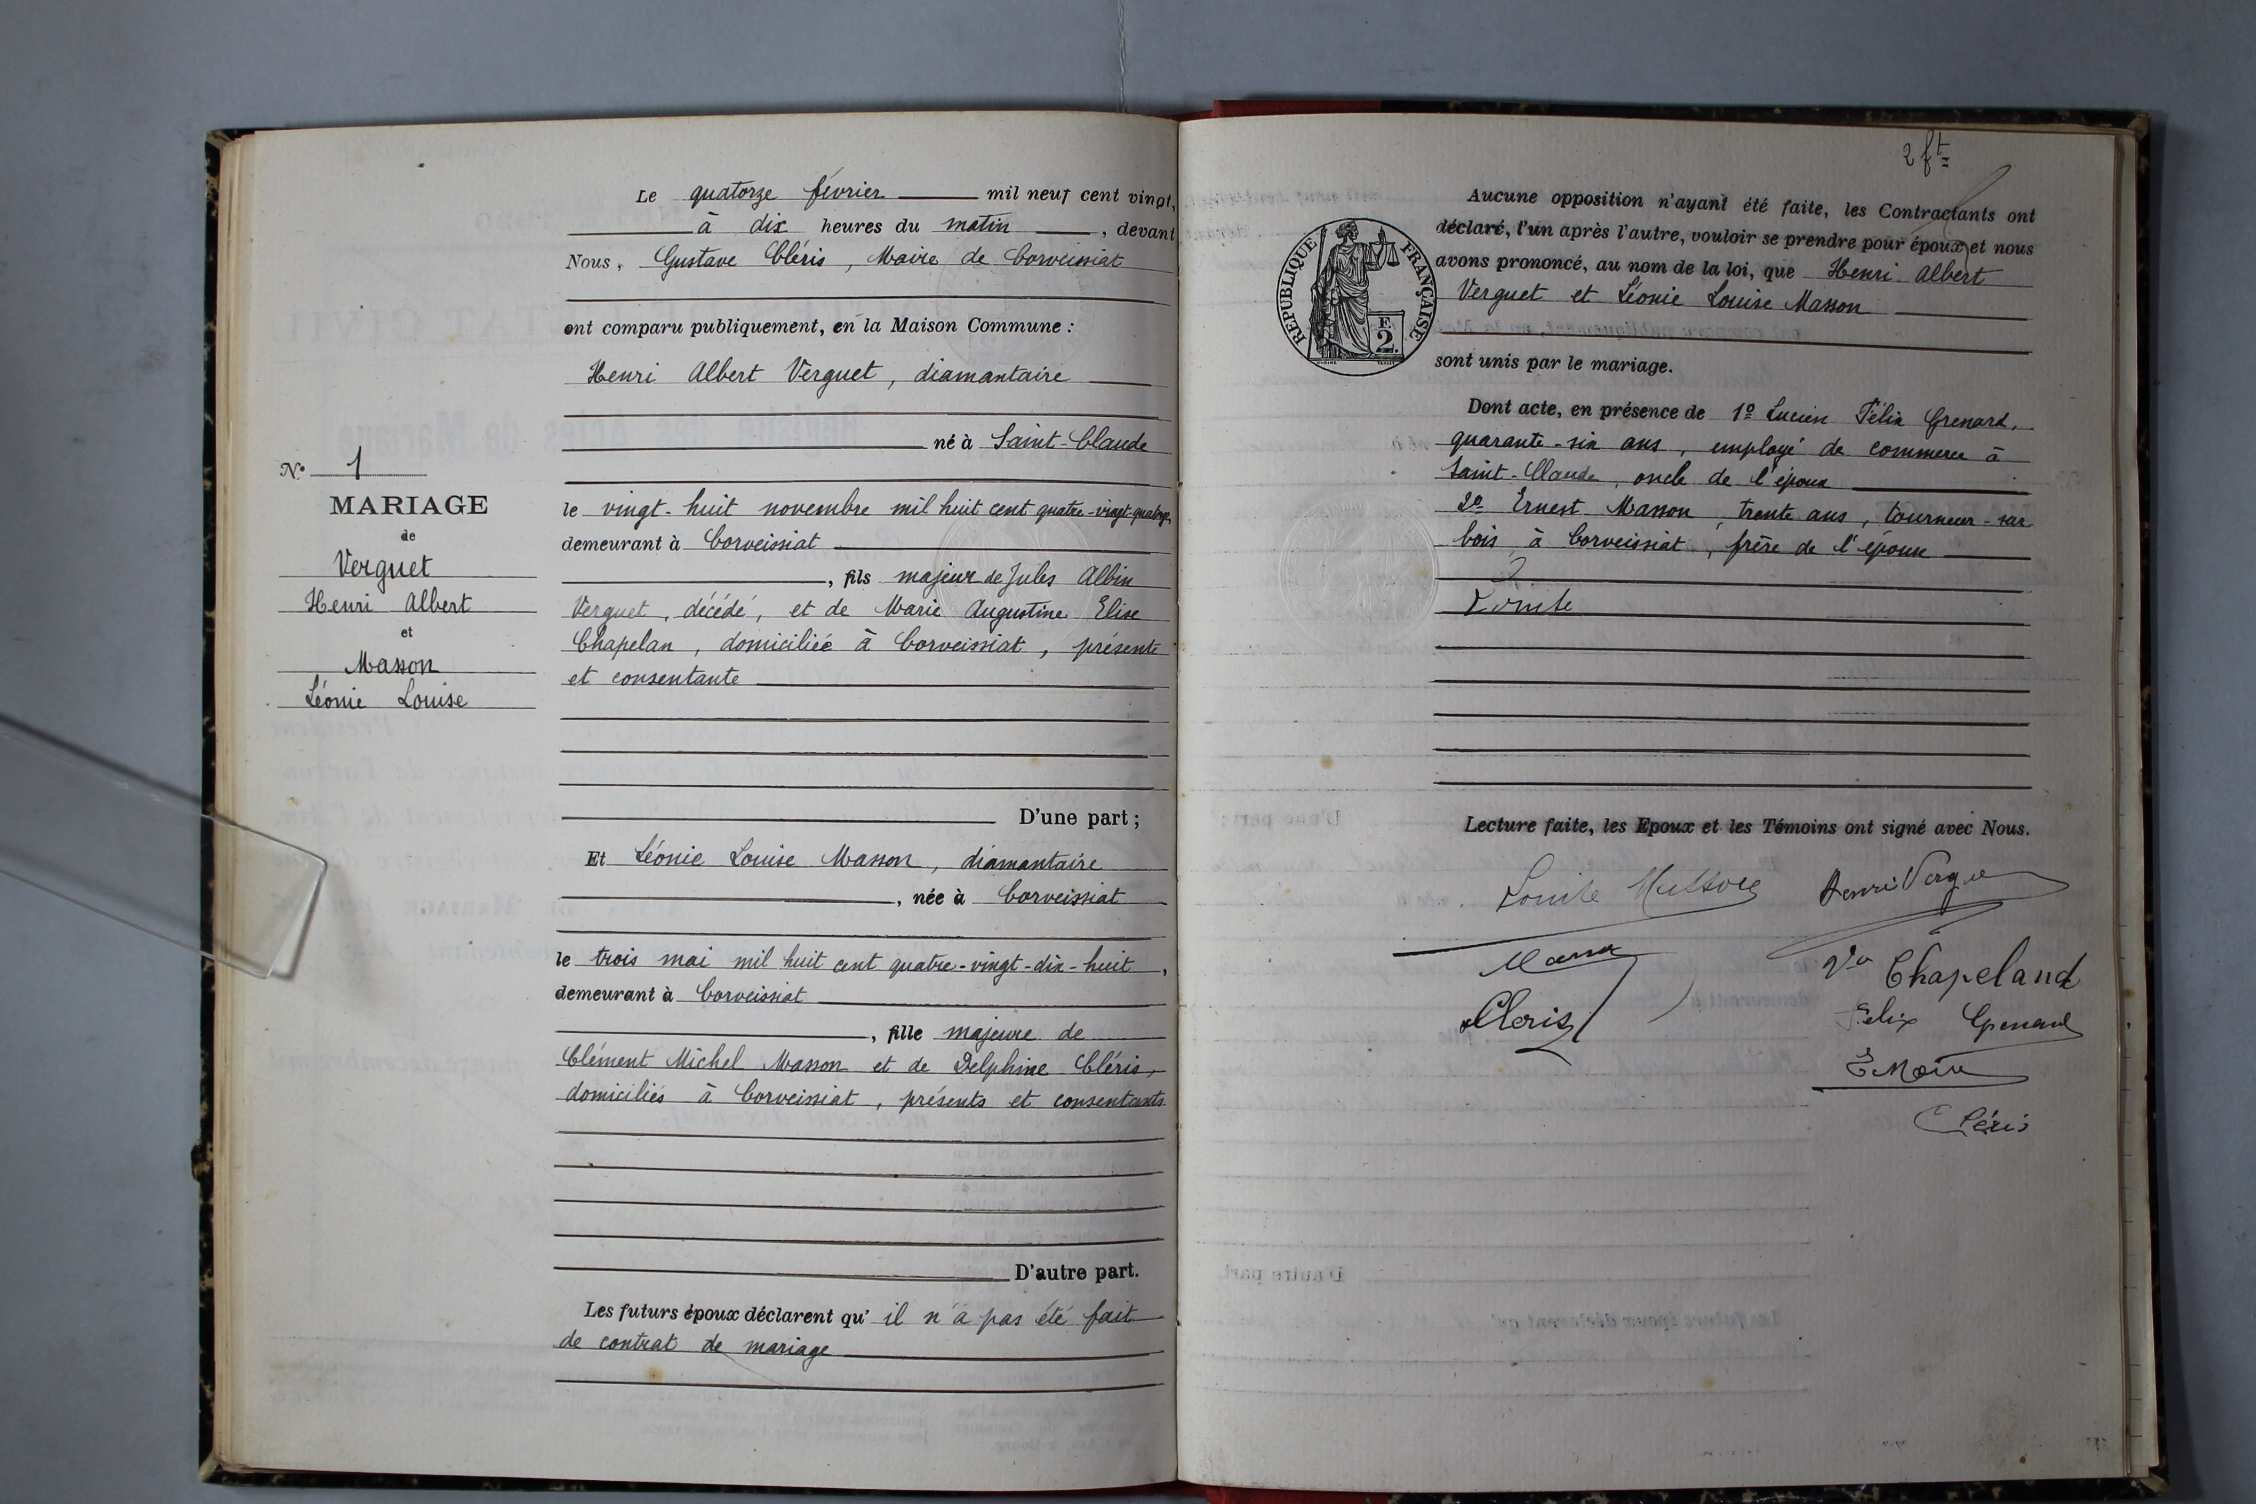 Le quatorze février mil neuf cent vingt,
à dix heures du matin, devant
Nous, Gustave Cléris, Maire de Corveissiat
ont comparu publiquement, en la Maison Commune :
Henri Albert Verguet, diamantaire
né à Saint-Claude
le vingt-huit novembre mil huit cent quatre-vingt-quatorze,
demeurant à Corveissiat
, fils majeur de Jules Albin
Verguet, décédé, et de Marie Augustine Elise
Chapelan, domiciliée à Corveissiat, présente
et consentante
D'une part ;
Et Léonie Louise Masson, diamantaire
, née à Corveissiat
le trois mai mil huit cent quatre-vingt-dix-huit,
demeurant à Corveissiat
, fille majeure de
Clément Michel Masson et de Delphine Cléris,
domiciliés à Corveissiat, présents et consentants
D'autre part.
Les futurs époux déclarent qu'il n'a pas été fait
de contrat de mariage
N° 1
MARIAGE
de
Verguet
Henri Albert
et
Masson
Léonie Louise
2 ft
RÉPUBLIQUE FRANÇAISE
2
F.
Aucune opposition n'ayant été faite, les Contractants ont
déclaré, l'un après l'autre, vouloir se prendre pour époux et nous
avons prononcé, au nom de la loi, que Henri Albert
Verguet et Léonie Louise Masson
sont unis par le mariage.
Dont acte, en présence de 1º Lucien Félix Grenard,
quarante-six ans, employé de commerce à
Saint-Claude, oncle de l'époux
2º Ernest Masson, trente ans, tourneur-sur
bois, à Corveissiat, frère de l'épouse
Lecture faite, les Epoux et les Témoins ont signé avec Nous.
Louise Masson
Henri Verguet
Masson
Vve Chapeland
Cleris
Felix Grenard
Cléris